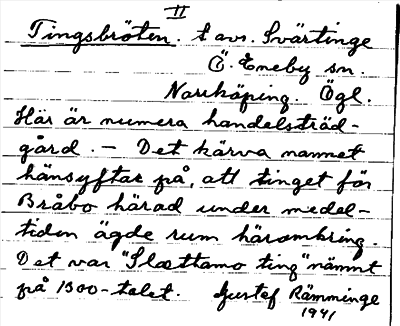 II
Tingsbröten. t avs. Svärtinge
Ö. Eneby sn.
Norrköping. Ögl.
Här är numera handelsträd-
gård. — Det kärva namnet
hänsyftar på, att tinget för
Bråbo härad under medel-
tiden ägde rum häromkring.
Det var "Slættamo ting" nämnt
på 1300-talet. Gustaf Rämminge
1941